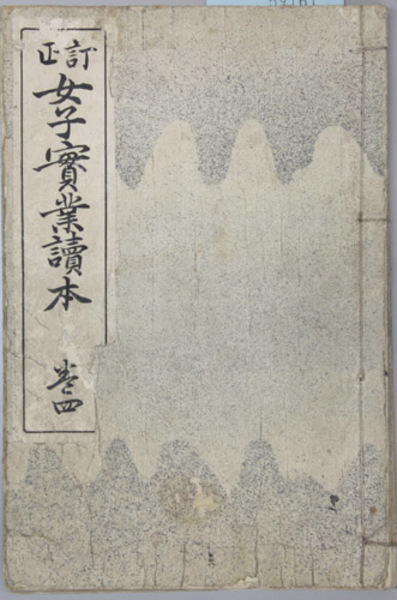 訂正
女子實業讀本
卷四